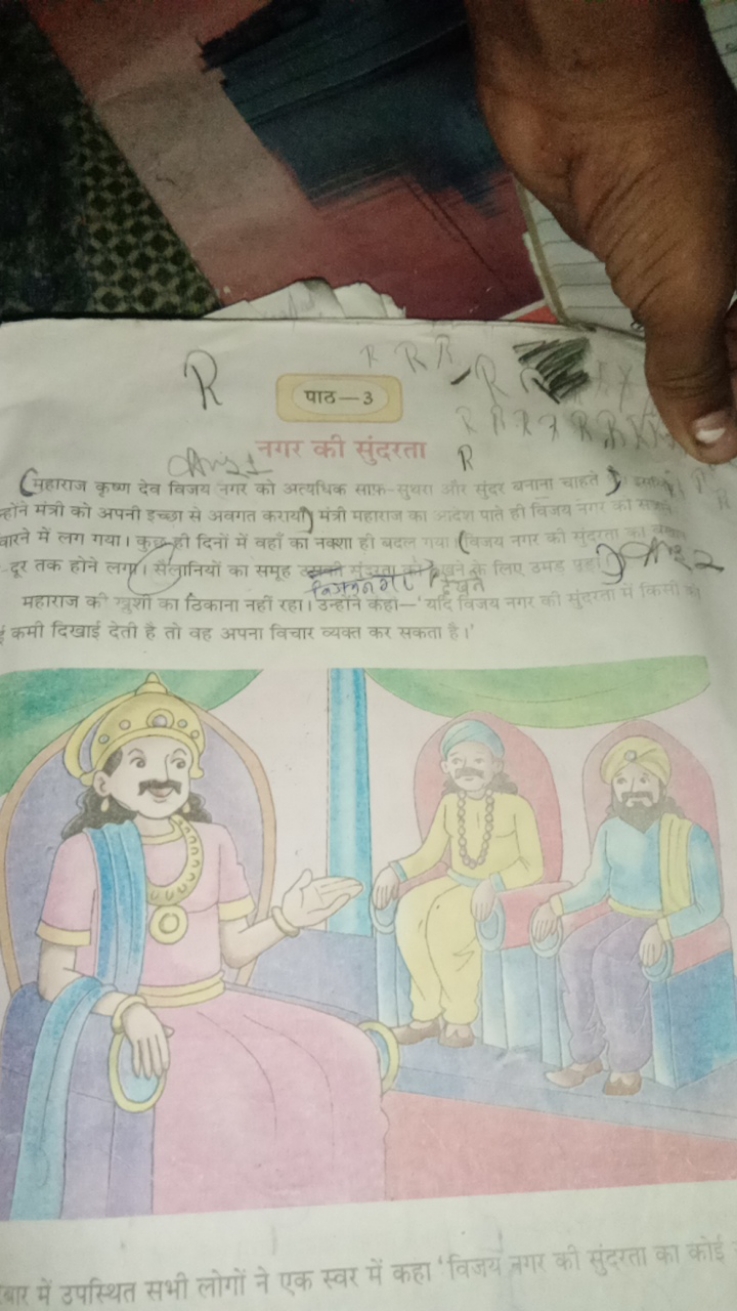 R R R R R
पाठ—3
R R R
नगर की सुंदरता
Ans 1 R
महाराज कृष्ण देव विजय नगर को अत्यधिक साफ़-सुथरा और सुंदर बनाना चाहते
न्होंने मंत्री को अपनी इच्छा से अवगत कराया। मंत्री महाराज का आदेश पाते ही विजय नगर को
वारने में लग गया। कुछ ही दिनों में वहाँ का नक्शा ही बदल गया। विजय नगर की सुंदरता का
-दूर तक होने लगा। सैलानियों का समूह उसकी सुंदरता को देखने के लिए उमड़ Ans 2
देखने
महाराज की खुशी का ठिकाना नहीं रहा। उन्होंने कहा—'यदि विजय नगर की सुंदरता में किसी को
ई कमी दिखाई देती है तो वह अपना विचार व्यक्त कर सकता है।'
रबार में उपस्थित सभी लोगों ने एक स्वर में कहा 'विजय नगर की सुंदरता का कोई